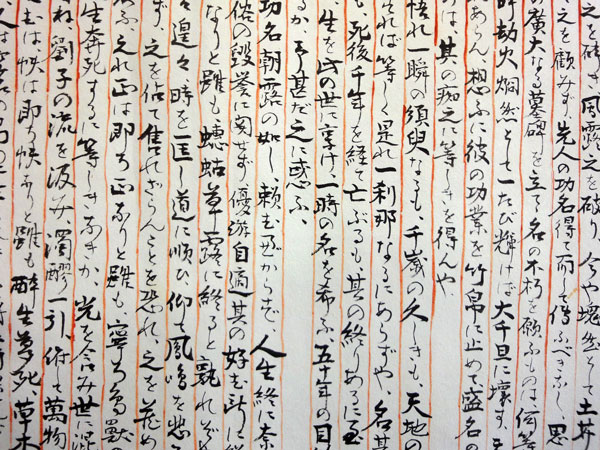 之を砕き、風露之を破り、今や塊然として土芥
之を顧みず、先人の功名得て而して傳ふべきなし、思
廣大なる墓碑を立て、名の不朽を願ふものは何等
劫火炯然として一たび輝けば大千旦に壊す、
あらん、想ふに彼の功業を竹帛に止めて盛名の
は其の痴之に等しきを得んや、
悟れ一瞬の須臾なるも、千歳の久しきも、天地の
れば等しく是れ一刹那なるにあらずや、名其
も、死後千年を経て亡ぶるも其の終りあるに至
生を此の世に享け、一時の名を希ふ、五十年の目
るか、予甚だ之に惑ふ、
功名朝露の如し、頼むべからず、人生終に奈
俗の毀誉に関せず、優游自適其の好む所に従
なりと雖も、蟪蛄草露に終ると孰れぞや
遑々、時を匡し道に順ひ、仰て鳳鳴を悲
之を估て售れざらんことを恐れ、之を
正は即ち正なりと雖も、寧ろ鳥獣の
生奔死するに等しきなきか、光を含み世に混
ね、劉子の流を汲み、濁醪一引、俯て萬物
むは、快は即ち快なりと雖も、酔生夢死、草木